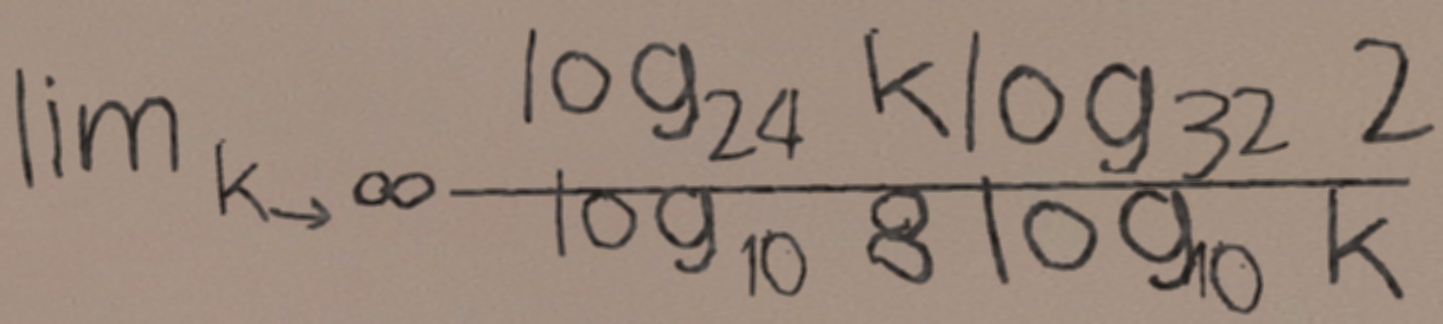 \lim_{k \to \infty} \frac{\log_{24} k \log_{32} 2}{\log_{10} 8 \log_{10} k}